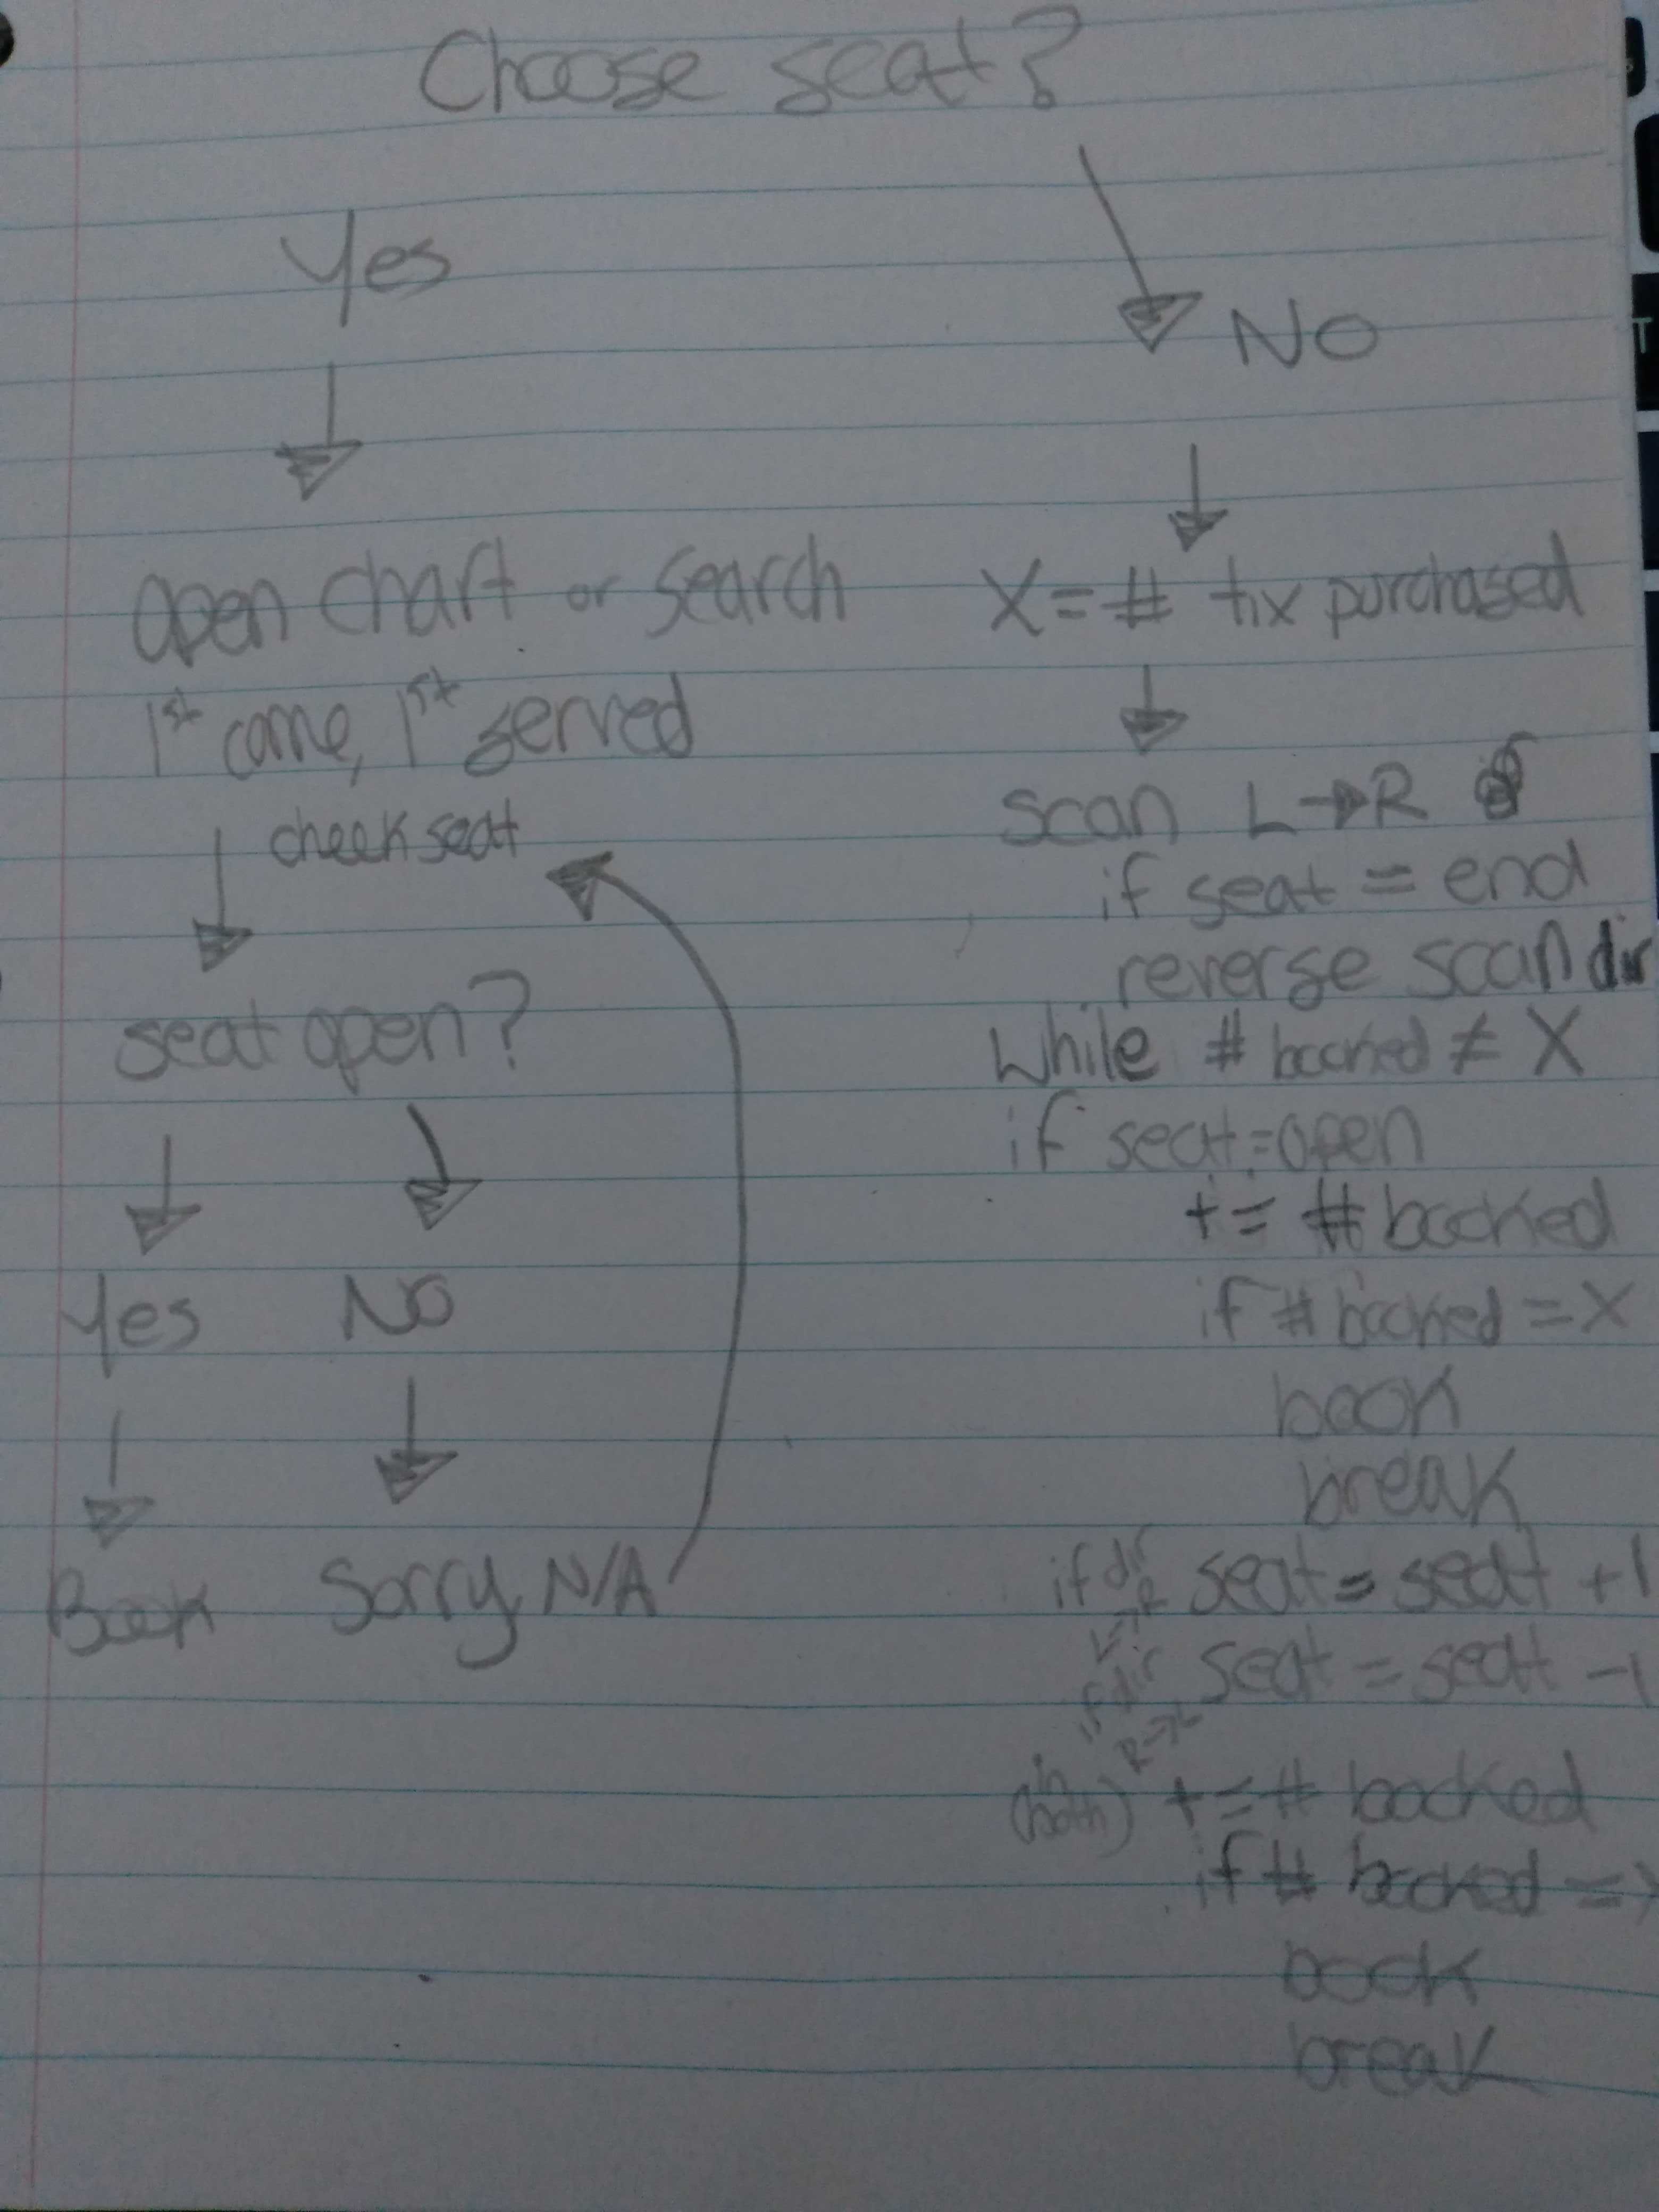 Choose seat?
Yes
NO
open chart or search
1st come, 1st served
check seat
seat open?
Yes NO
Book Sorry N/A
X = # tix purchased
scan L→R
if seat = end
reverse scan dir
While # booked ≠ X
if seat = open
+= # booked
if # booked = X
book
break
if dir L→R seat = seat +1
if dir R→L seat = seat -1
(in both) += # booked
if # booked =
book
break